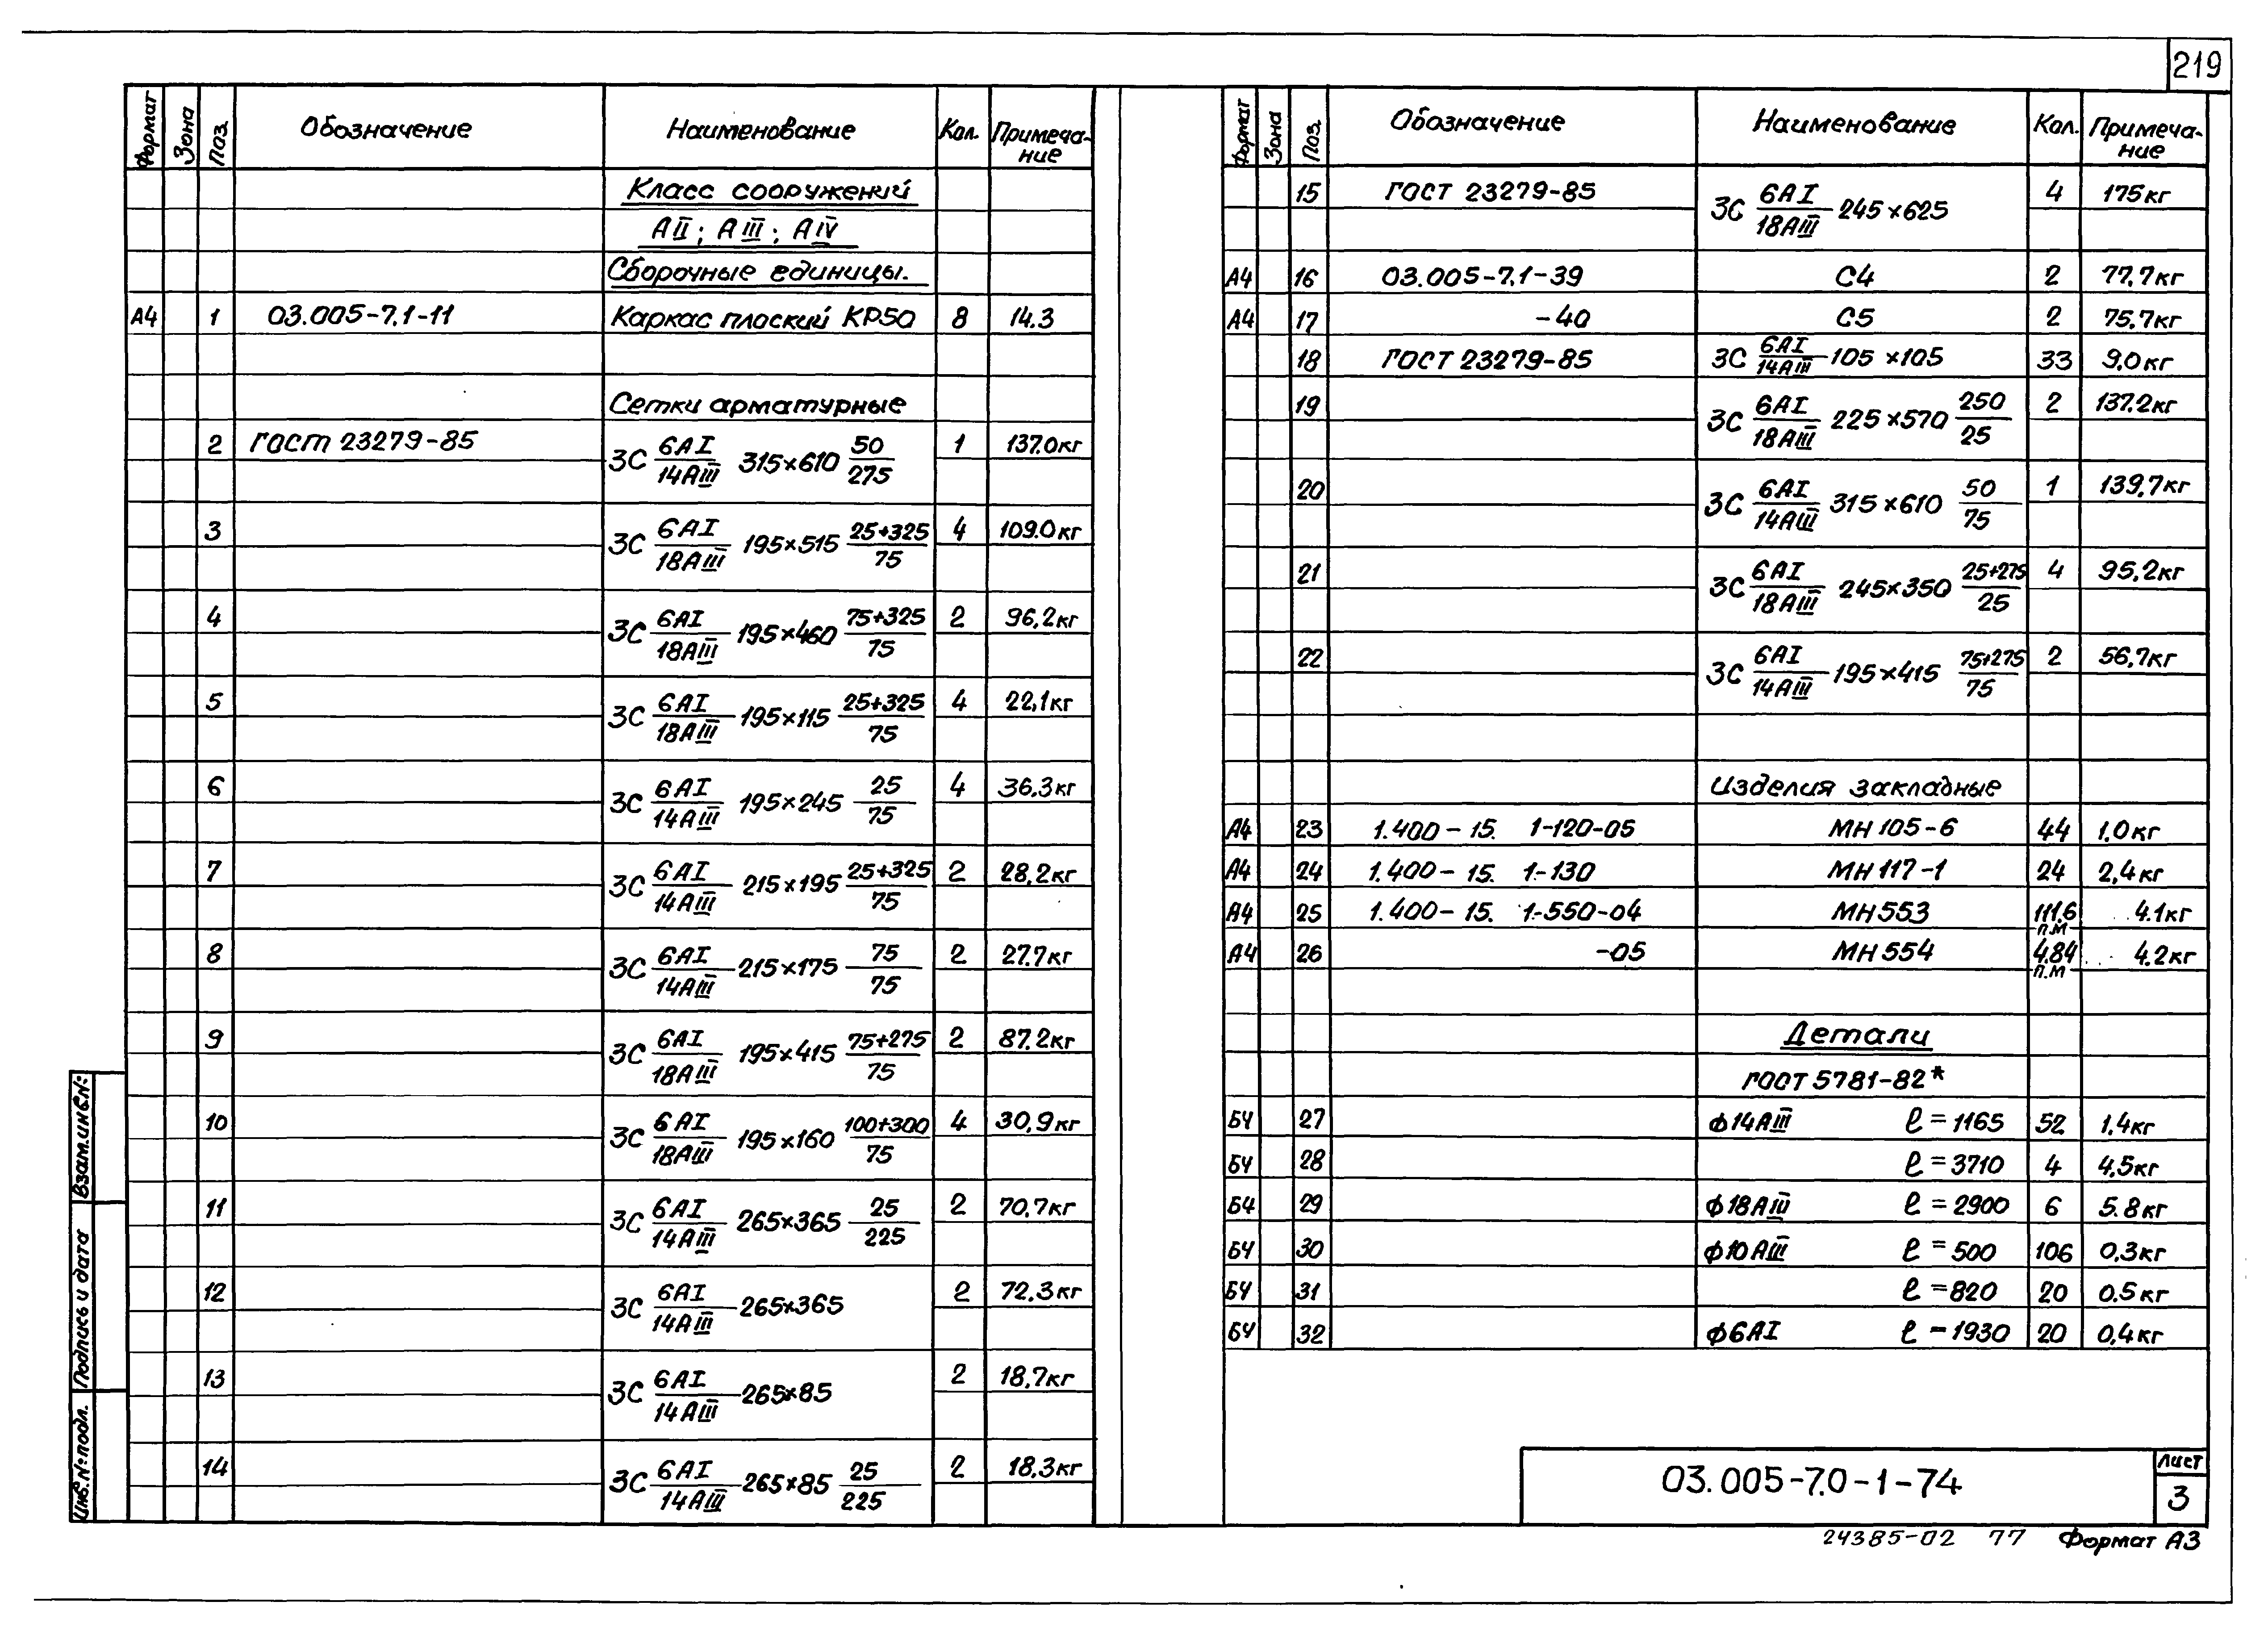 219
Формат Зона Поз. Обозначение Наименование Кол. Примеча-ние
Класс сооружений
АII; АIII; АIV
Сборочные единицы.
А4 1 03.005-7.1-11 Каркас плоский КР50 8 14.3
Сетки арматурные
2 ГОСТ 23279-85 3С 6АI/14АIII 315×610 50/275 1 137.0кг
3 3С 6АI/18АIII 195×515 25+325/75 4 109.0кг
4 3С 6АI/18АIII 195×460 75+325/75 2 96,2кг
5 3С 6АI/18АIII 195×115 25+325/75 4 22,1кг
6 3С 6АI/14АIII 195×245 25/75 4 36.3кг
7 3С 6АI/14АIII 215×195 25+325/75 2 28,2кг
8 3С 6АI/14АIII 215×175 75/75 2 27.7кг
9 3С 6АI/18АIII 195×415 75+275/75 2 87.2кг
10 3С 6АI/18АIII 195×160 100+300/75 4 30,9кг
11 3С 6АI/14АIII 265×365 25/225 2 70,7кг
12 3С 6АI/14АIII 265×365 2 72.3кг
13 3С 6АI/14АIII 265×85 2 18,7кг
14 3С 6АI/14АIII 265×85 25/225 2 18.3кг
Формат Зона Поз. Обозначение Наименование Кол. Примеча-ние
15 ГОСТ 23279-85 3С 6АI/18АIII 245×625 4 175кг
А4 16 03.005-7.1-39 С4 2 77,7кг
А4 17 -40 С5 2 75,7кг
18 ГОСТ 23279-85 3С 6АI/14АIII 105×105 33 9,0кг
19 3С 6АI/18АIII 225×570 250/25 2 137.2кг
20 3С 6АI/14АIII 315×610 50/75 1 139,7кг
21 3С 6АI/18АIII 245×350 25+275/25 4 95,2кг
22 3С 6АI/14АIII 195×415 75+275/75 2 56,7кг
Изделия закладные
А4 23 1.400-15. 1-120-05 МН 105-6 44 1,0кг
А4 24 1.400-15. 1-130 МН 117-1 24 2,4кг
А4 25 1.400-15. 1-550-04 МН 553 111,6 п.м 4.1кг
А4 26 -05 МН 554 4,84 п.м 4.2кг
Детали
ГОСТ 5781-82*
БЧ 27 ф14АIII ℓ=1165 52 1,4кг
БЧ 28 ℓ=3710 4 4,5кг
БЧ 29 ф18АIV ℓ=2900 6 5.8кг
БЧ 30 ф10АIII ℓ=500 106 0,3кг
БЧ 31 ℓ=820 20 0.5кг
БЧ 32 ф6АI ℓ=1930 20 0,4кг
Взам.инв.№
Подпись и дата
Инв.№ подл.
03.005-7.0-1-74
Лист
3
24385-02 77 Формат А3